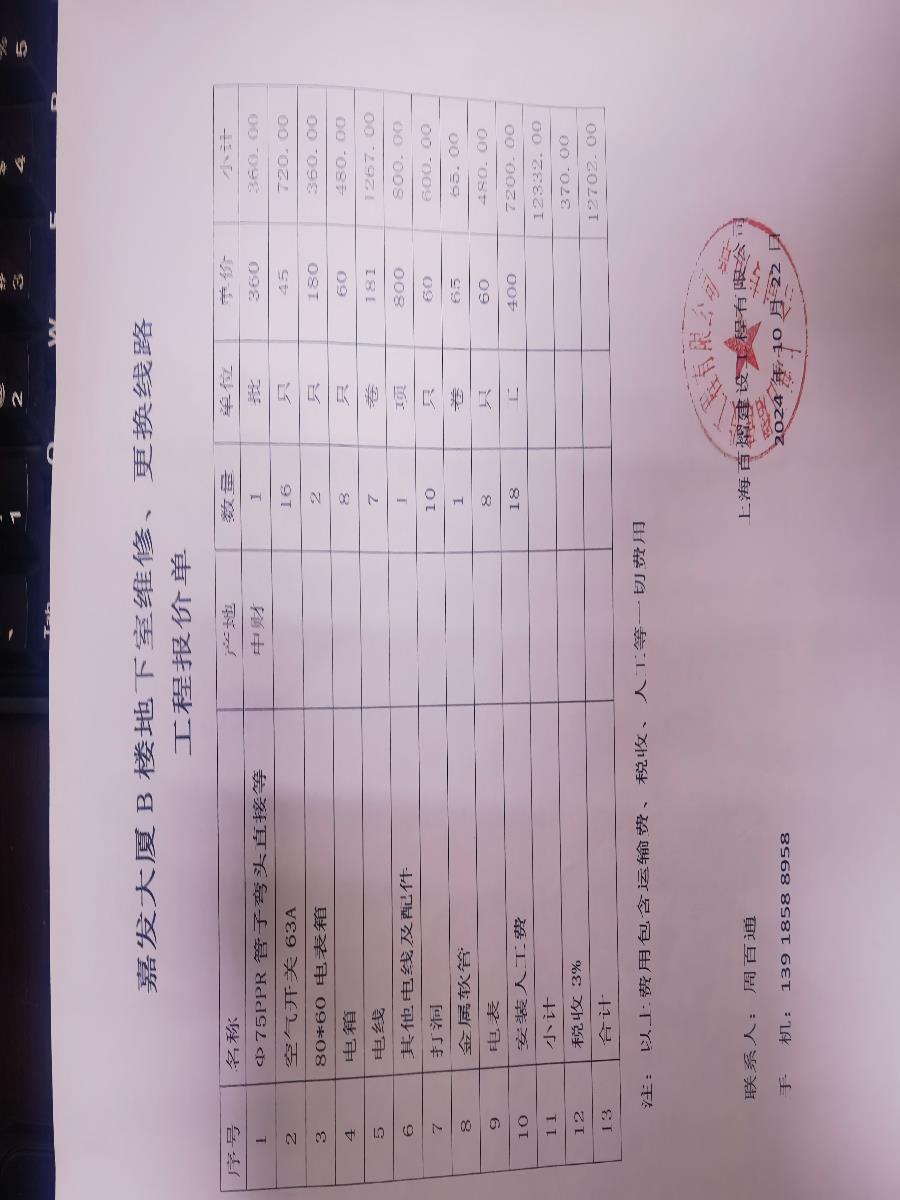 嘉发大厦 B 楼地下室维修、更换线路
工程报价单
序号 名称 产地 数量 单位 单价 小计
1 Φ75PPR 管子弯头直接等 中财 1 批 360 360.00
2 空气开关 63A 16 只 45 720.00
3 80*60 电表箱 2 只 180 360.00
4 电箱 8 只 60 480.00
5 电线 7 卷 181 1267.00
6 其他电线及配件 1 项 800 800.00
7 打洞 10 只 60 600.00
8 金属软管 1 卷 65 65.00
9 电表 8 只 60 480.00
10 安装人工费 18 工 400 7200.00
11 小计 12332.00
12 税收 3% 370.00
13 合计 12702.00
注：以上费用包含运输费、税收、人工等一切费用
上海百熠建设工程有限公司
联系人：周百通
手 机：139 1858 8958
2024 年 10 月 22 日